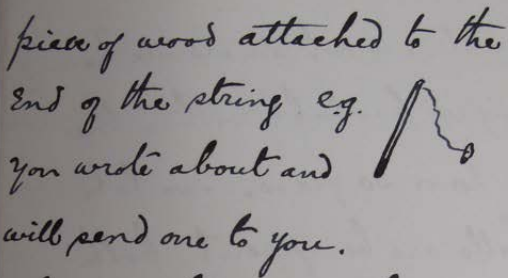 piece of wood attached to the
End of the string e.g.
you wrote about and
will send one to you.